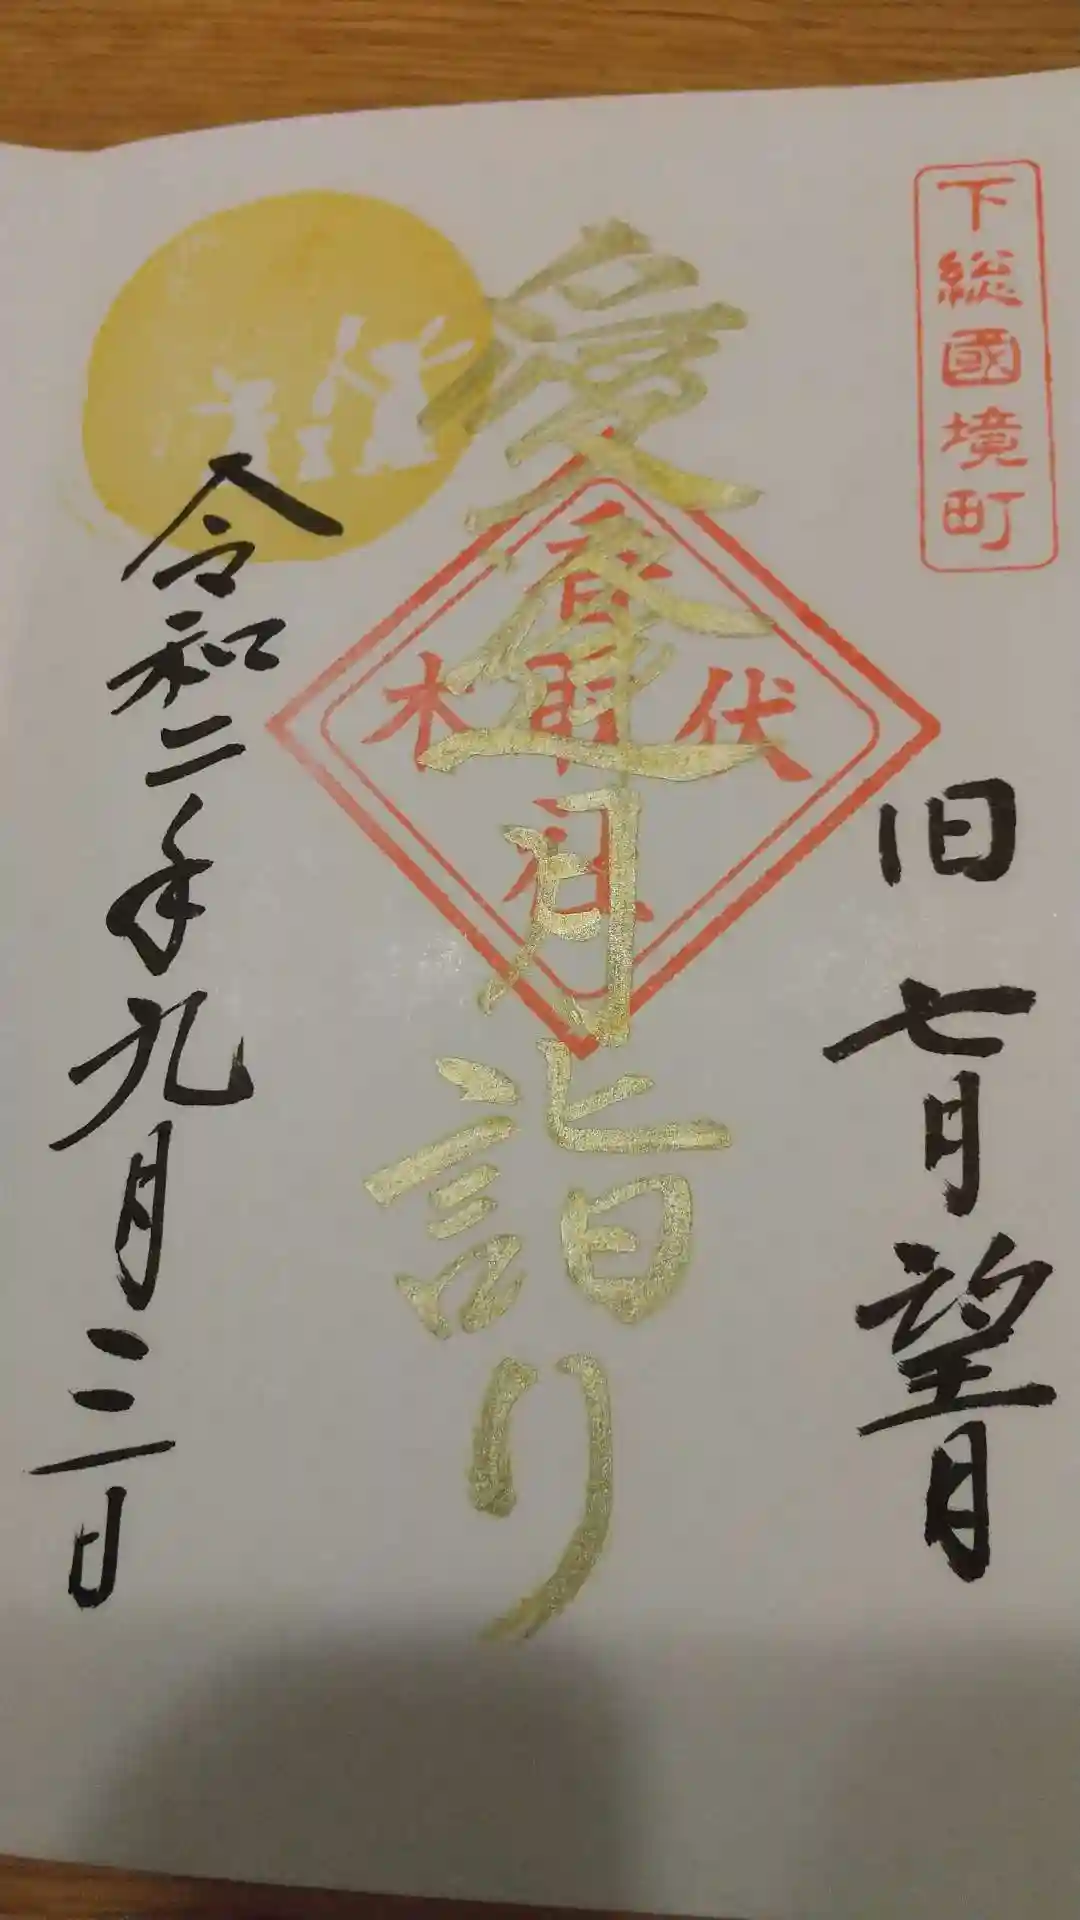 下総國境町
旧七月望月
愛逢月詣り
伏木
香取社
令和二年九月三日